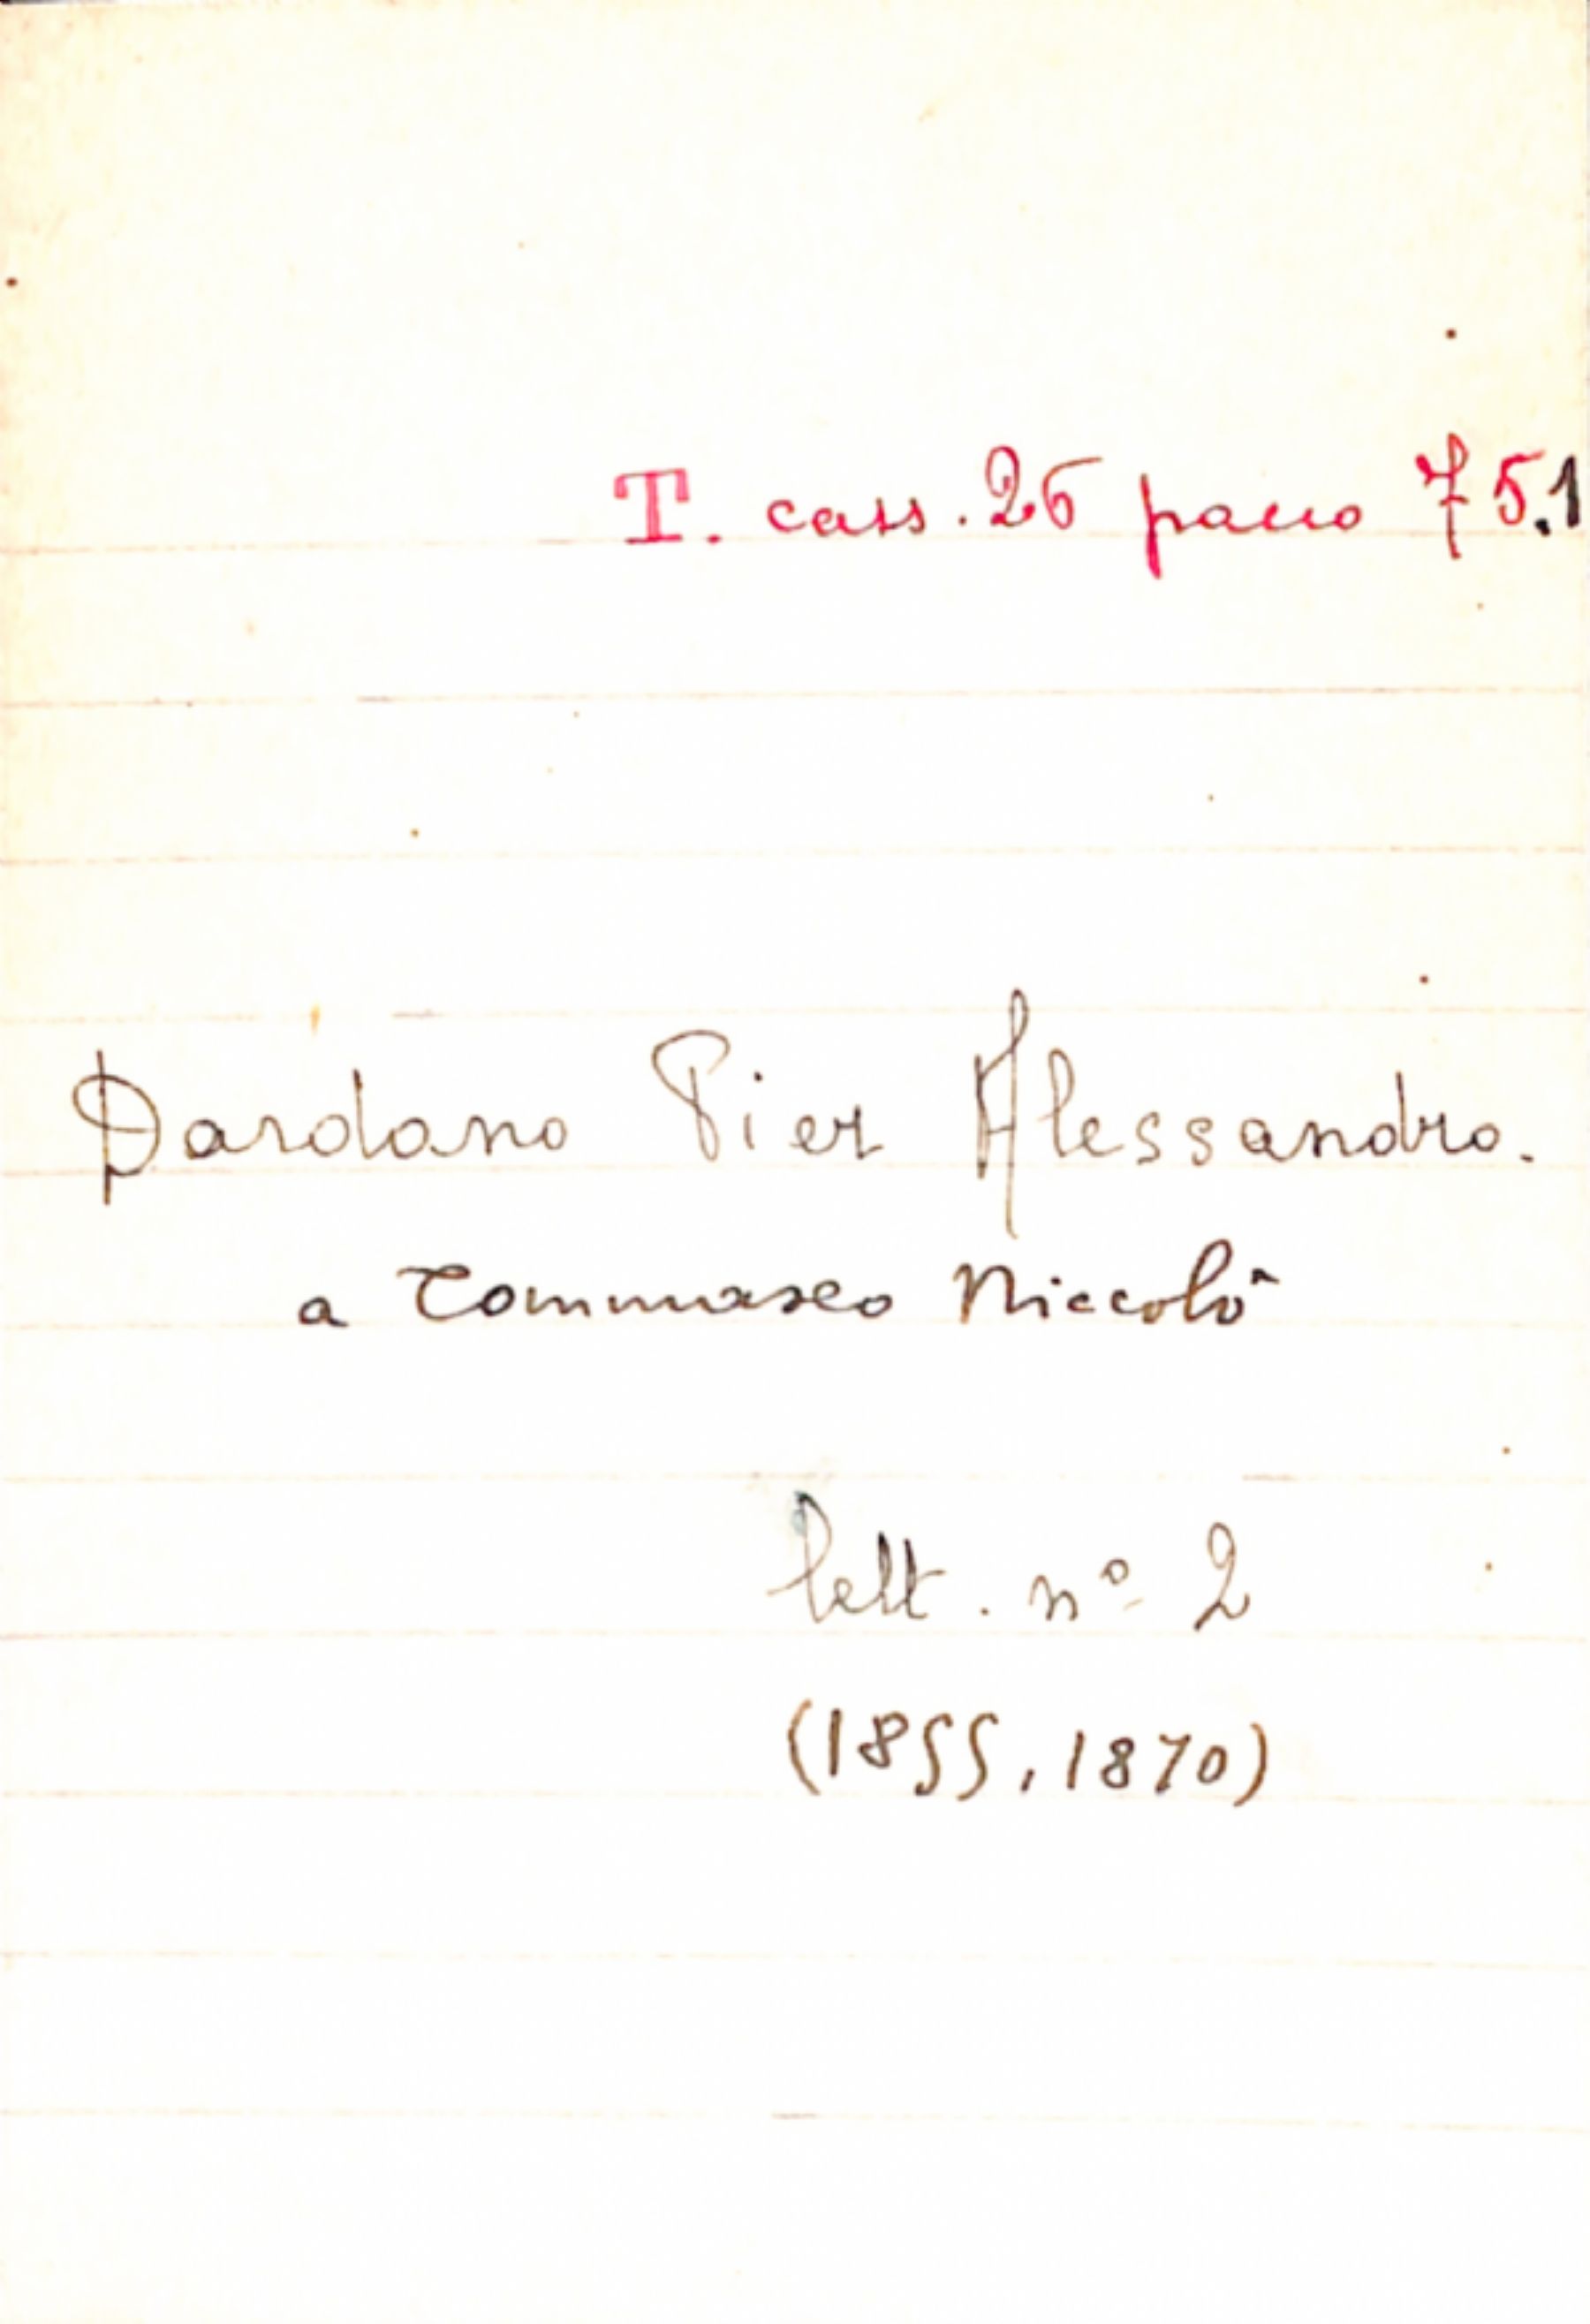 T. cass. 26 pacco 75.1
Dardano Pier Alessandro.
a Tommaseo Niccolò
lett. nº 2
(1855, 1870)